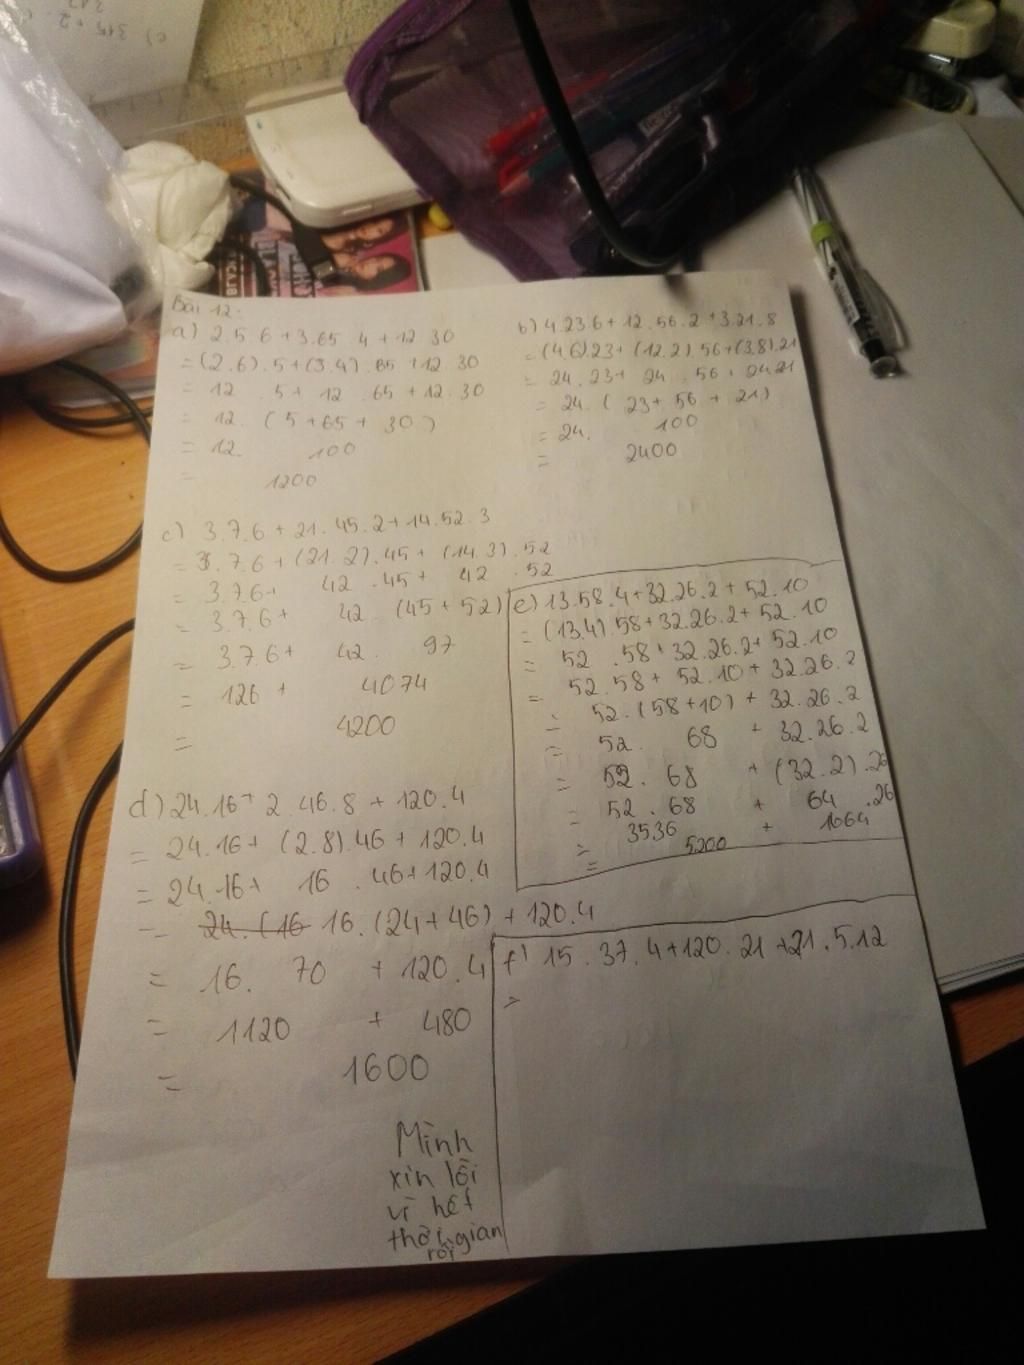 Bài 12:
a) 2.5.6 + 3.65.4 + 12.30
= (2.6).5 + (3.4).65 + 12.30
= 12.5 + 12.65 + 12.30
= 12.(5 + 65 + 30)
= 12 100
= 1200
b) 4.23.6 + 12.56.2 + 3.21.8
= (4.6).23 + (12.2).56 + (3.8).21
= 24.23 + 24.56 + 24.21
= 24.(23 + 56 + 21)
= 24. 100
= 2400
c) 3.7.6 + 21.45.2 + 14.52.3
= 3.7.6 + (21.2).45 + (14.3).52
= 3.7.6 + 42.45 + 42.52
= 3.7.6 + 42.(45 + 52)
= 3.7.6 + 42. 97
= 126 + 4074
= 4200
d) 24.16 + 2.46.8 + 120.4
= 24.16 + (2.8).46 + 120.4
= 24.16 + 16.46 + 120.4
= 24.(16 16.(24 + 46) + 120.4
= 16. 70 + 120.4
= 1120 + 480
= 1600
e) 13.58.4 + 32.26.2 + 52.10
= (13.4).58 + 32.26.2 + 52.10
= 52.58 + 32.26.2 + 52.10
= 52.58 + 52.10 + 32.26.2
= 52.(58 + 10) + 32.26.2
= 52. 68 + 32.26.2
= 52.68 + (32.2).26
= 52.68 + 64.26
= 3536 + 1664
= 5200
f) 15.37.4 + 120.21 + 21.5.12
=
Mình
xin lỗi
vì hết
thời gian
rồi